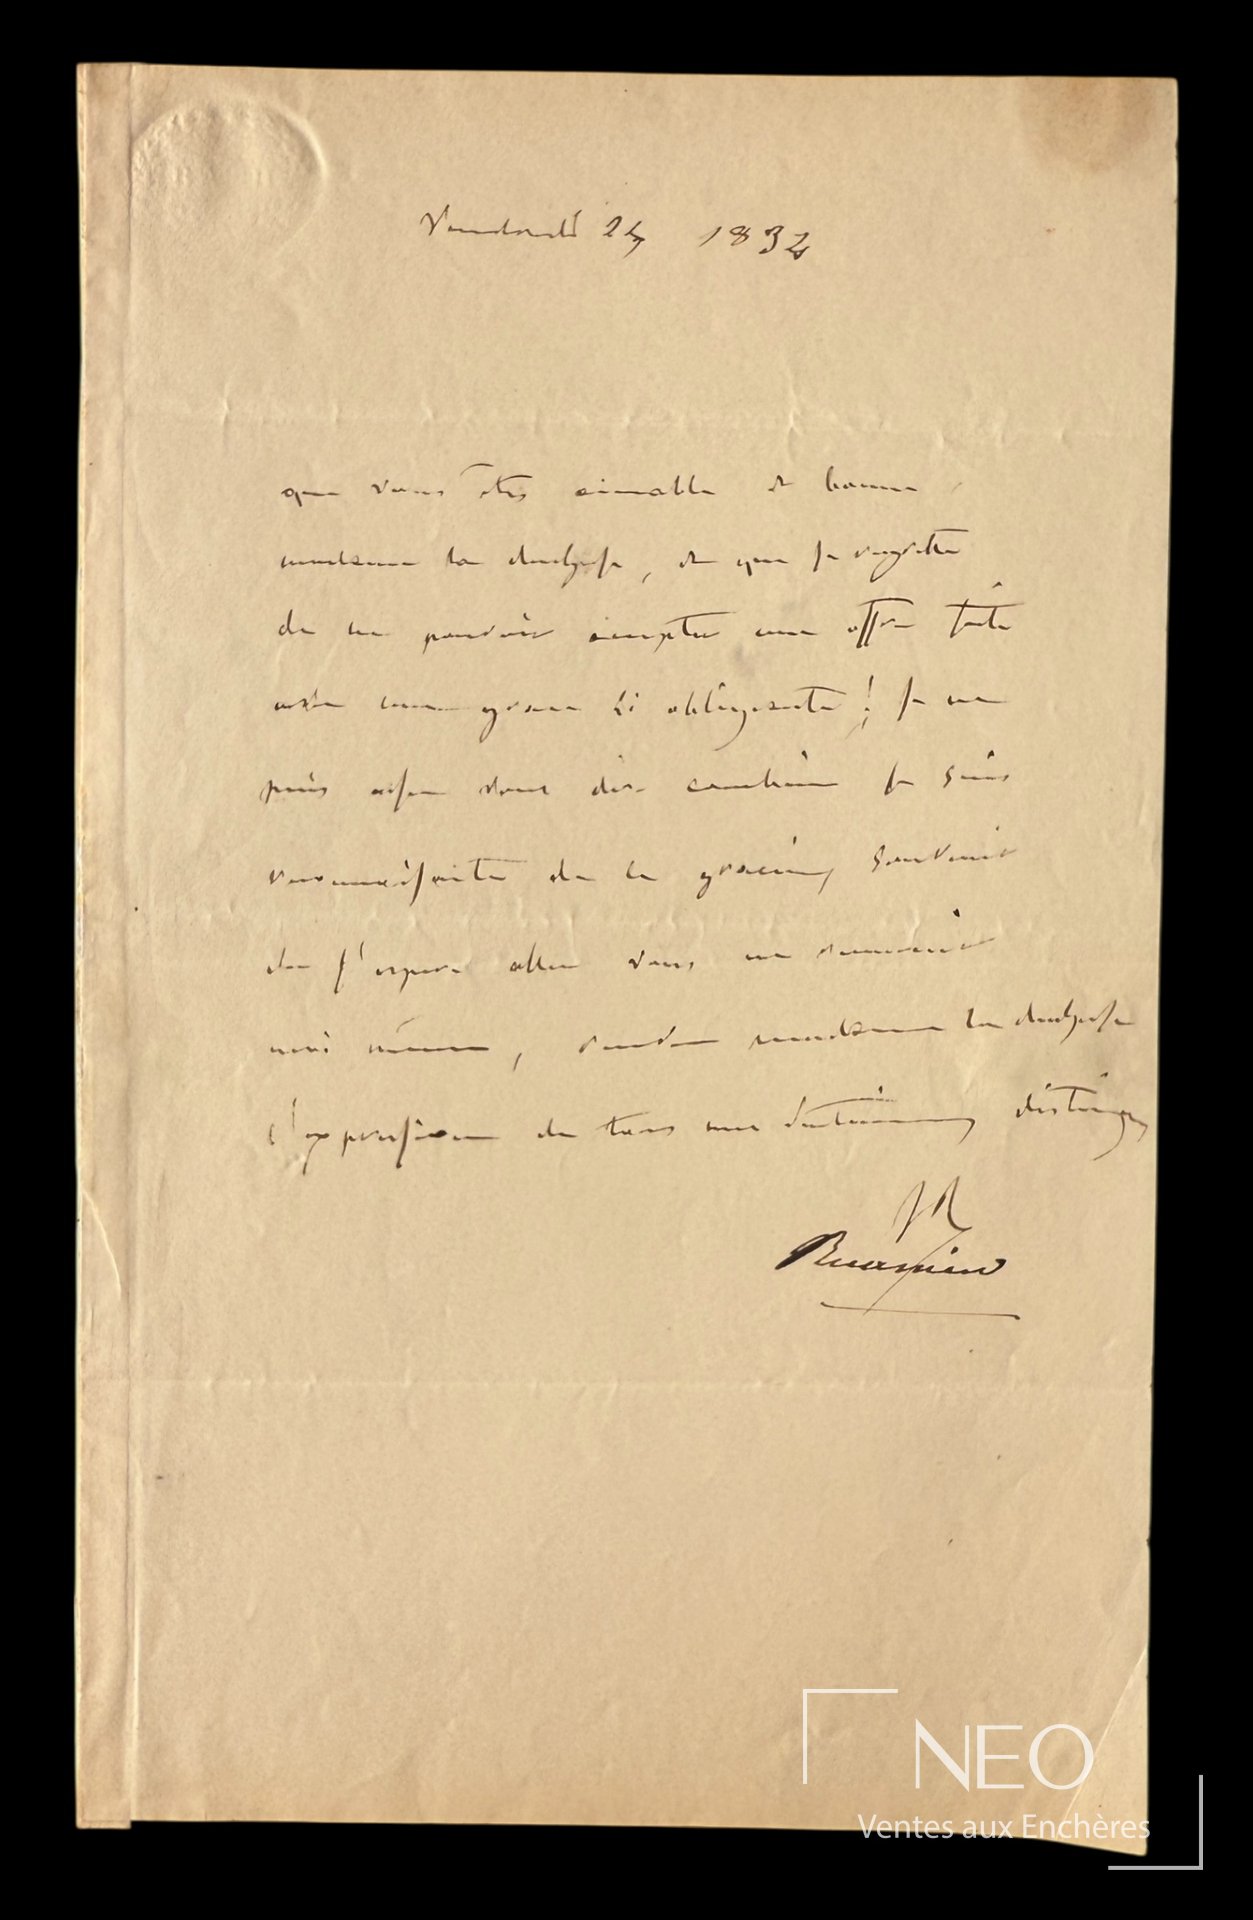 Vendredi 24 1832
que vous êtes aimable et bonne
madame la duchesse, et que je regrette
de ne pouvoir accepter une offre faite
avec une grace si obligeante! je ne
puis assez vous dire combien je suis
reconnaissante de ce gracieux souvenir
de j'espère allez vous me
moi même, madame la duchesse
l'expression de tous mes sentimens distingués
JR
Récamier
NEO
Ventes aux Enchères